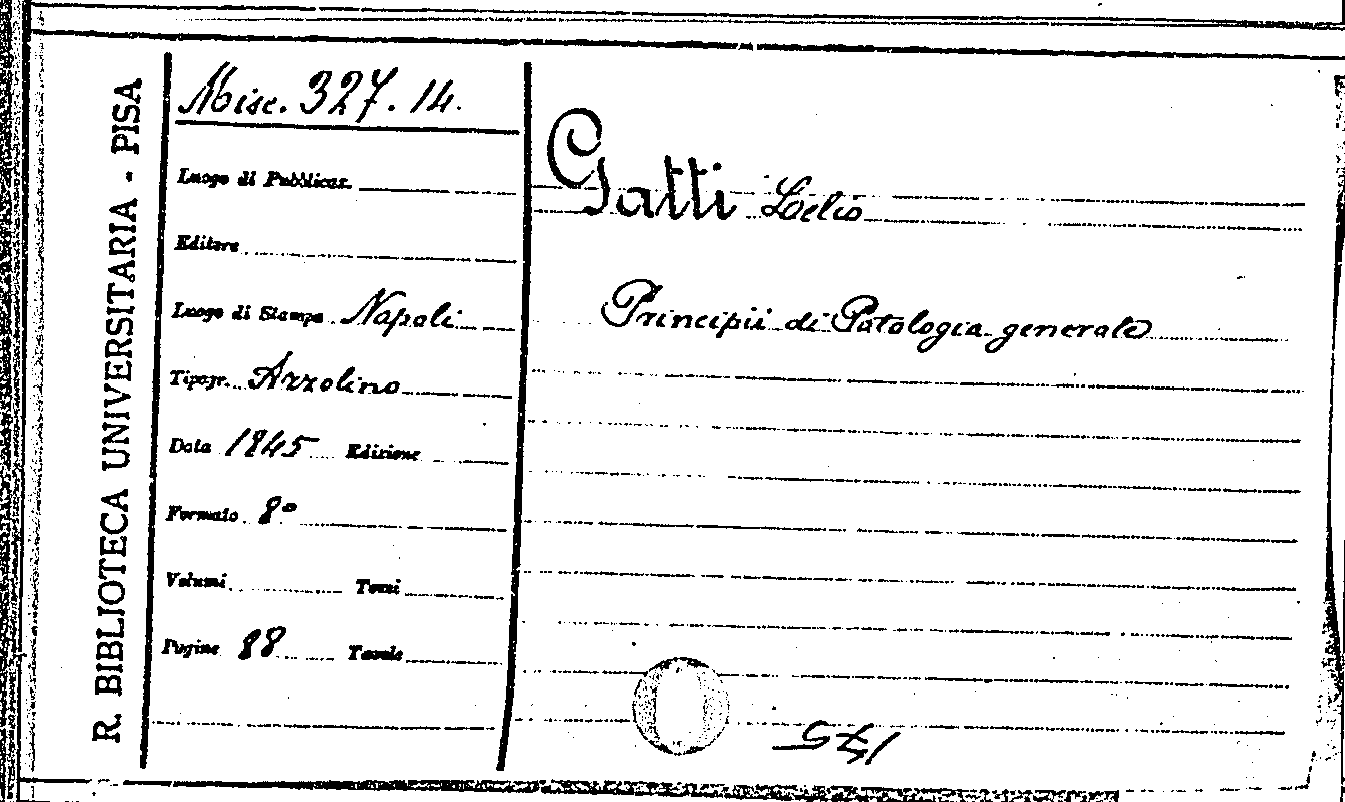 R. BIBLIOTECA UNIVERSITARIA - PISA
Misc. 327. 14.
Luogo di Pubblicaz.
Editore
Luogo di Stampa Napoli
Tipogr. Azzolino
Data 1845 Edizione
Formato 8º
Volumi Tomi
Pagine 88 Tavole
Gatti Lelio
Principii di Patologia generale
175